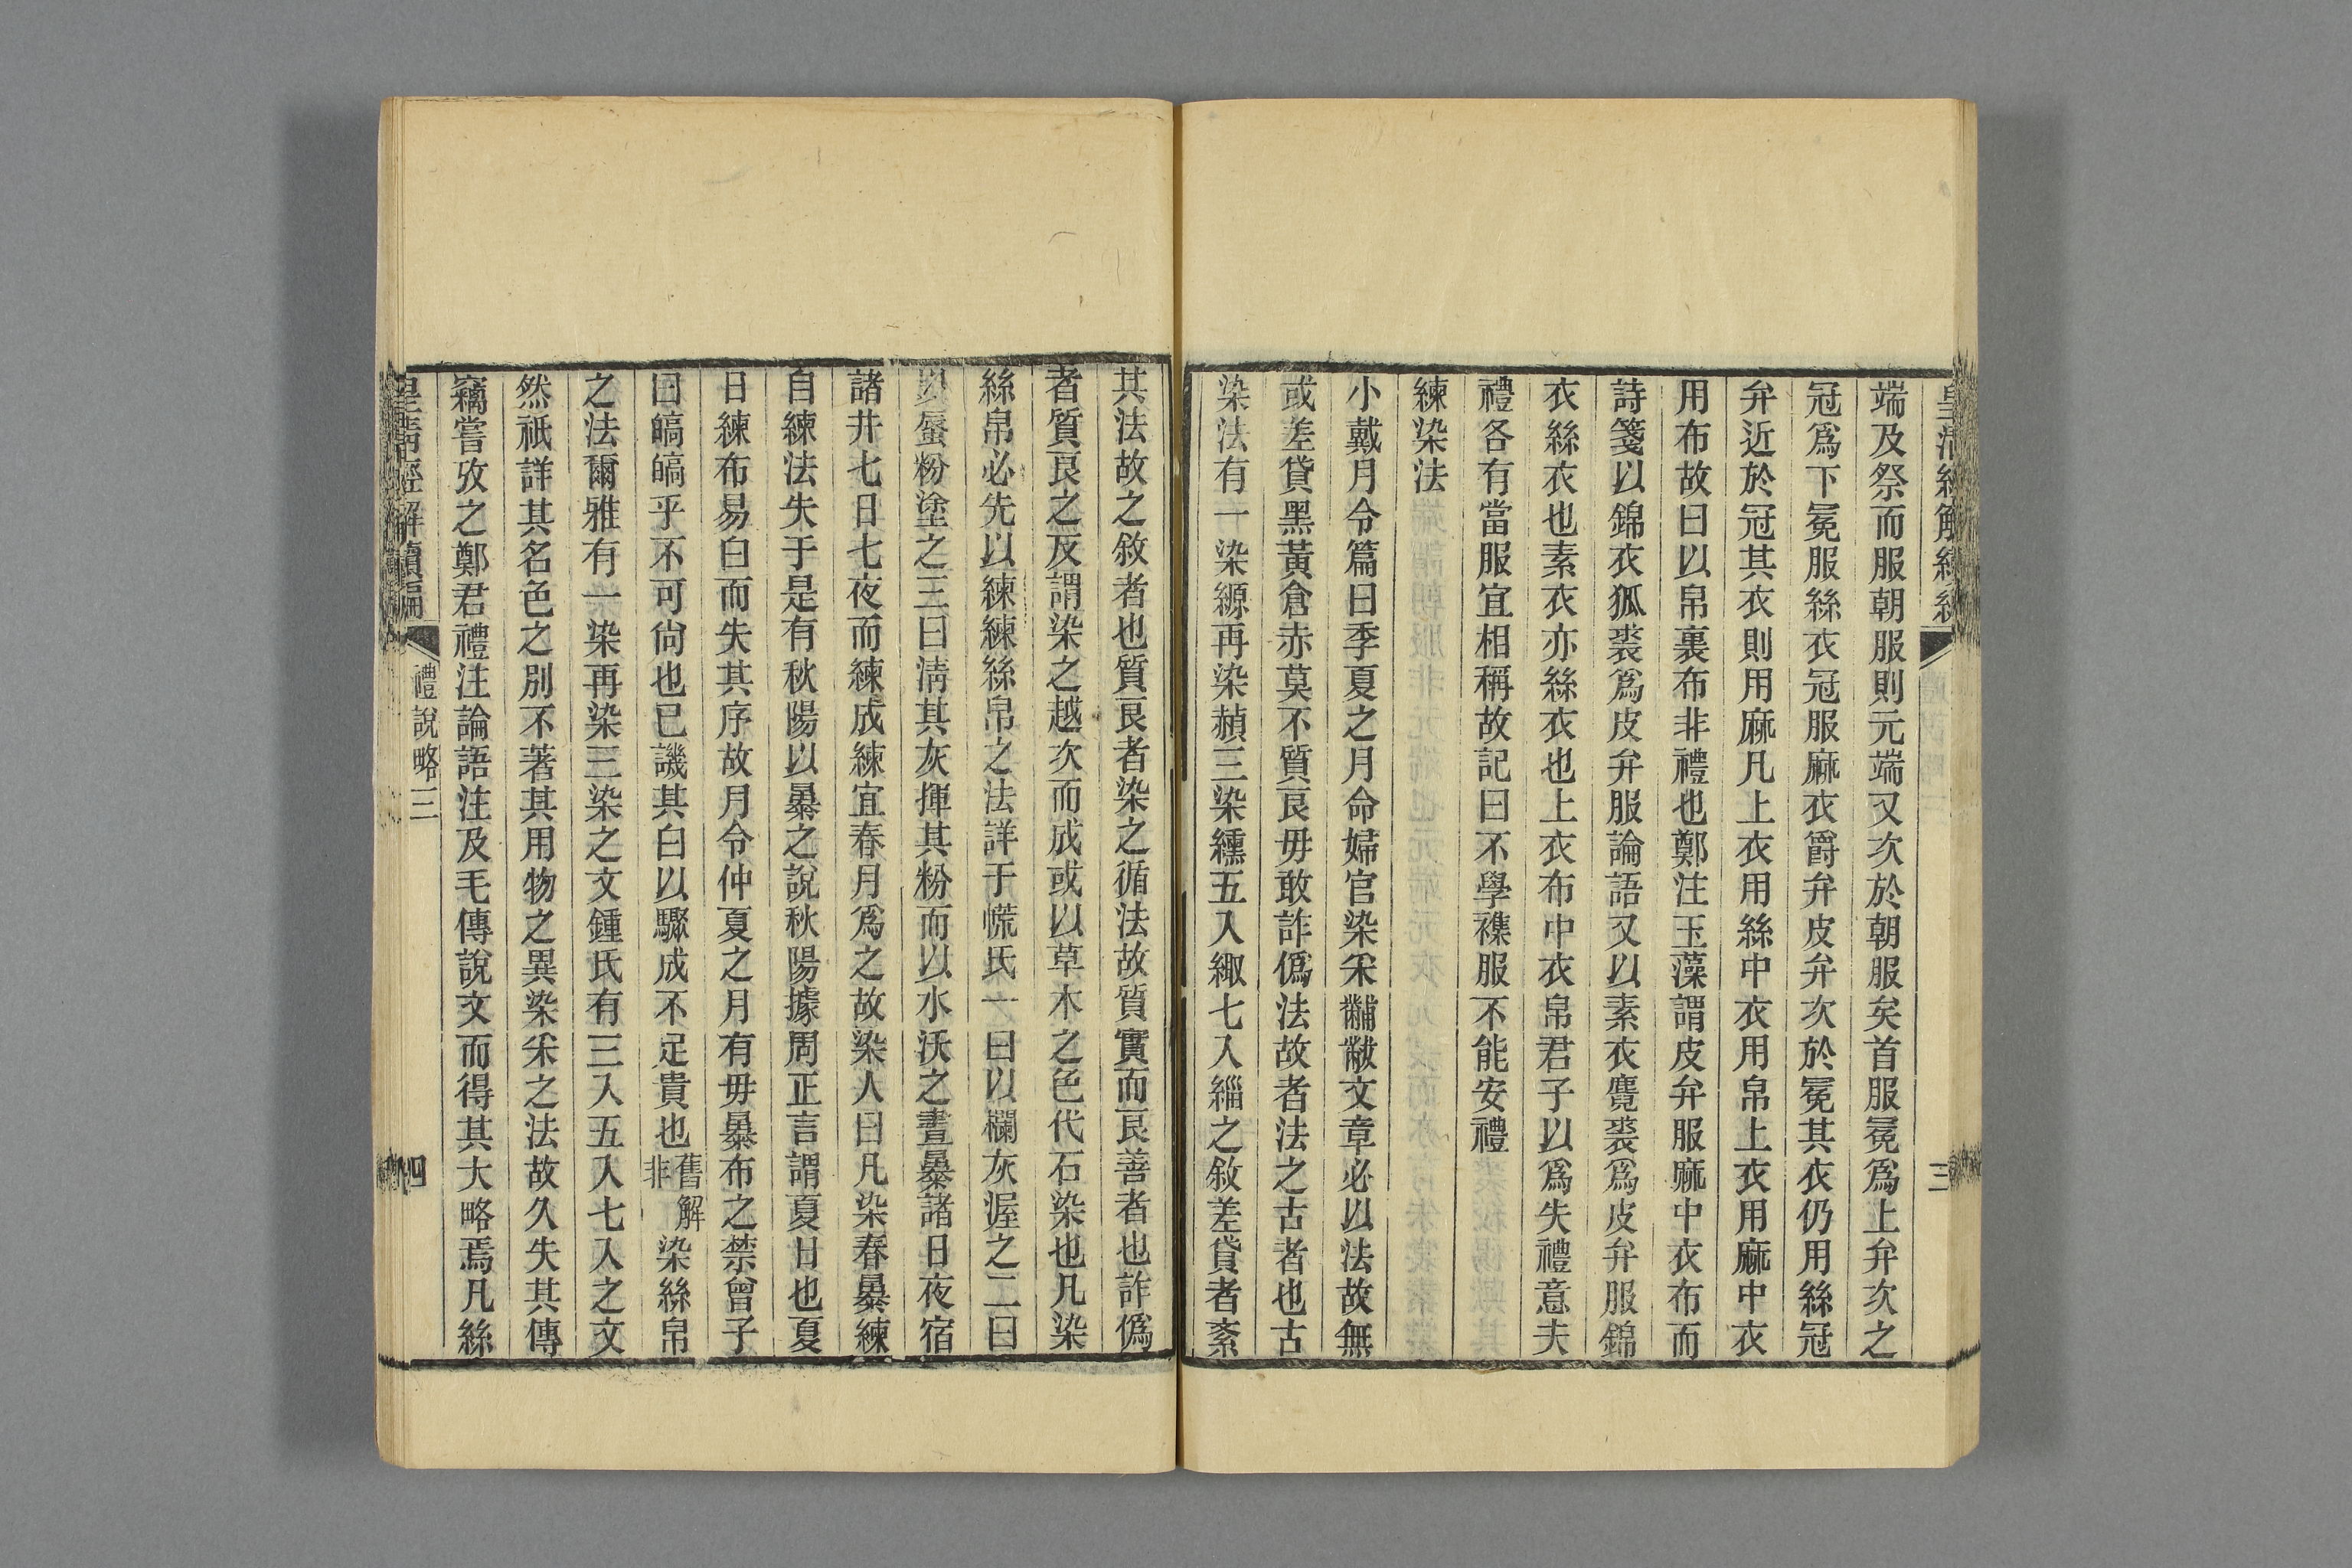 皇清經解續編
三
端及祭而服朝服則元端又次於朝服矣首服冕爲上弁次之
冠爲下冕服絲衣冠服麻衣爵弁皮弁次於冕其衣仍用絲冠
弁近於冠其衣則用麻凡上衣用絲中衣用帛上衣用麻中衣
用布故曰以帛裏布非禮也鄭注玉藻謂皮弁服麻中衣布而
詩箋以錦衣狐裘爲皮弁服論語又以素衣麑裘爲皮弁服錦
衣絲衣也素衣亦絲衣也上衣布中衣帛君子以爲失禮意夫
禮各有當服宜相稱故記曰不學襍服不能安禮
練染法
小戴月令篇曰季夏之月命婦官染采黼黻文章必以法故無
或差貸黑黃倉赤莫不質良毋敢詐僞法故者法之古者也古
染法有一染縓再染赬三染纁五入緅七入緇之敘差貸者紊
其法故之敘者也質良者染之循法故質實而良善者也詐僞
者質良之反謂染之越次而成或以草木之色代石染也凡染
絲帛必先以練練絲帛之法詳于㡛氏一曰以欄灰渥之二曰
以蜃粉塗之三曰淸其灰揮其粉而以水沃之晝暴諸日夜宿
諸井七日七夜而練成練宜春月爲之故染人曰凡染春暴練
自練法失于是有秋陽以暴之說秋陽據周正言謂夏日也夏
日練布易白而失其序故月令仲夏之月有毋暴布之禁曾子
曰皜皜乎不可尙也已譏其白以驟成不足貴也舊解非染絲帛
之法爾雅有一染再染三染之文鍾氏有三入五入七入之文
然祇詳其名色之別不著其用物之異染采之法故久失其傳
竊嘗攷之鄭君禮注論語注及毛傳說文而得其大略焉凡絲
皇淸經解續編
禮說略三
四